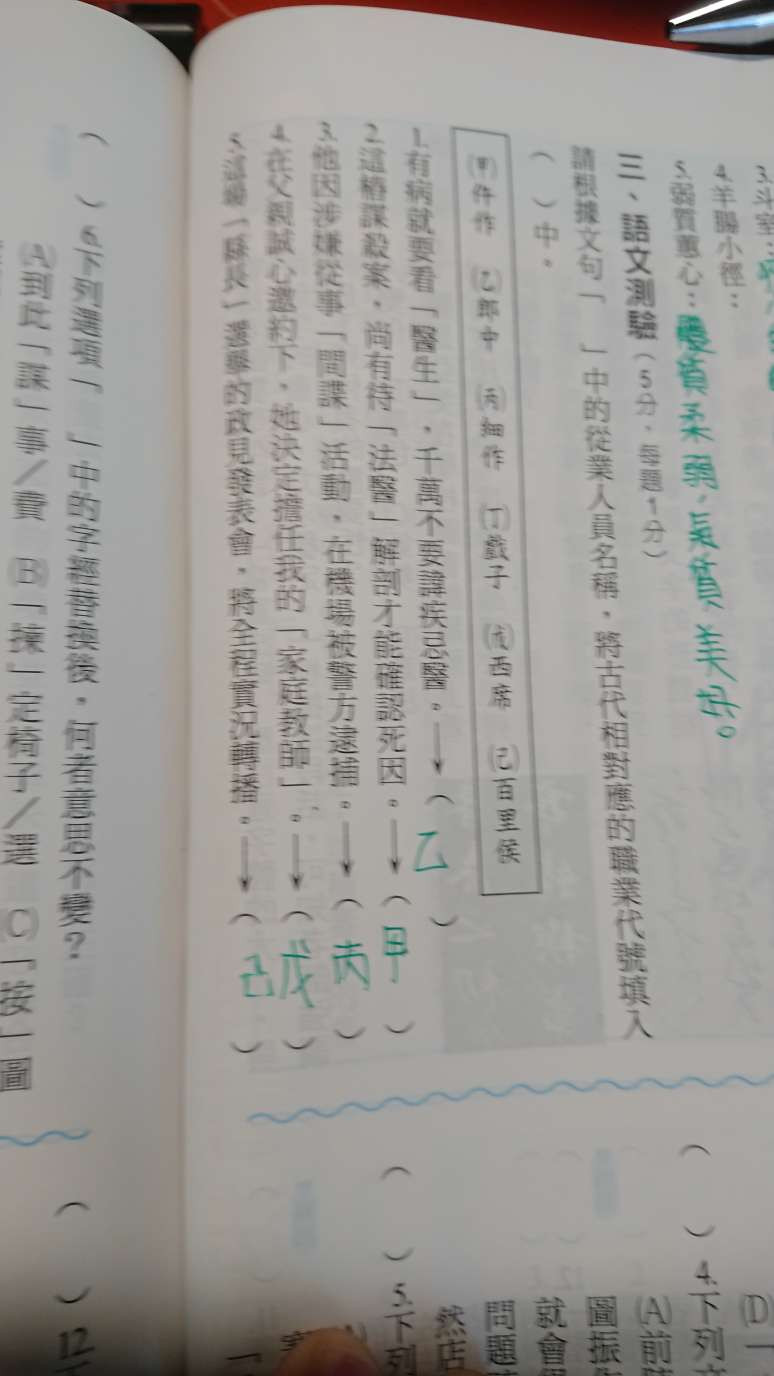 3.斗室：
4.羊腸小徑：
5.弱質蕙心：體質柔弱，氣質美好。
三、語文測驗（5分，每題1分）
請根據文句「　」中的從業人員名稱，將古代相對應的職業代號填入
（　）中。
(甲)仵作　(乙)郎中　(丙)細作　(丁)戲子　(戊)西席　(己)百里侯
1.有病就要看「醫生」，千萬不要諱疾忌醫。→（乙）
2.這樁謀殺案，尚有待「法醫」解剖才能確認死因。→（甲）
3.他因涉嫌從事「間諜」活動，在機場被警方逮捕。→（丙）
4.在父親誠心邀約下，她決定擔任我的「家庭教師」。→（戊）
5.這場「縣長」選舉的政見發表會，將全程實況轉播。→（己）
(D)
（　）4.下列
(A)前
圖振
就會
問題
然店
（　）5.下列
（　）6.下列選項「　」中的字經替換後，何者意思不變？
(A)到此「謀」事／費　(B)「揀」定椅子／選　(C)「按」圖
（　）12.